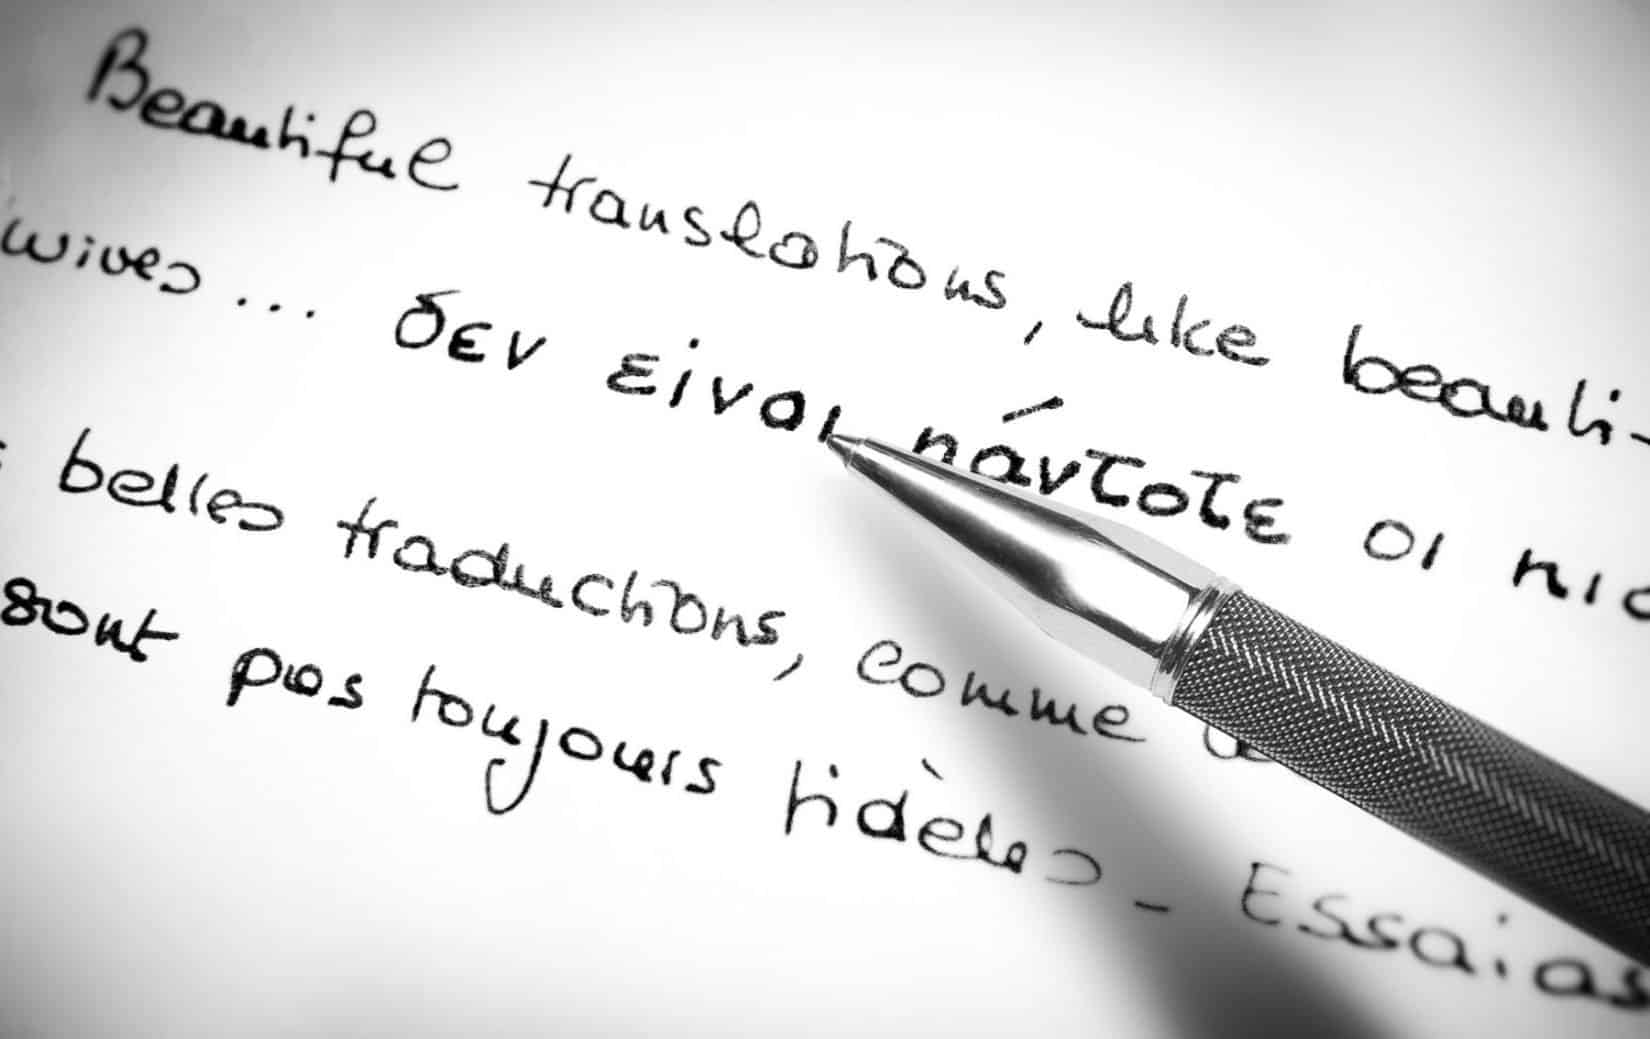 Beautiful translations, like beauti-
wives... δεν είναι πάντοτε οι πιο
belles traductions, comme
sont pas toujours fidèles - Essaias